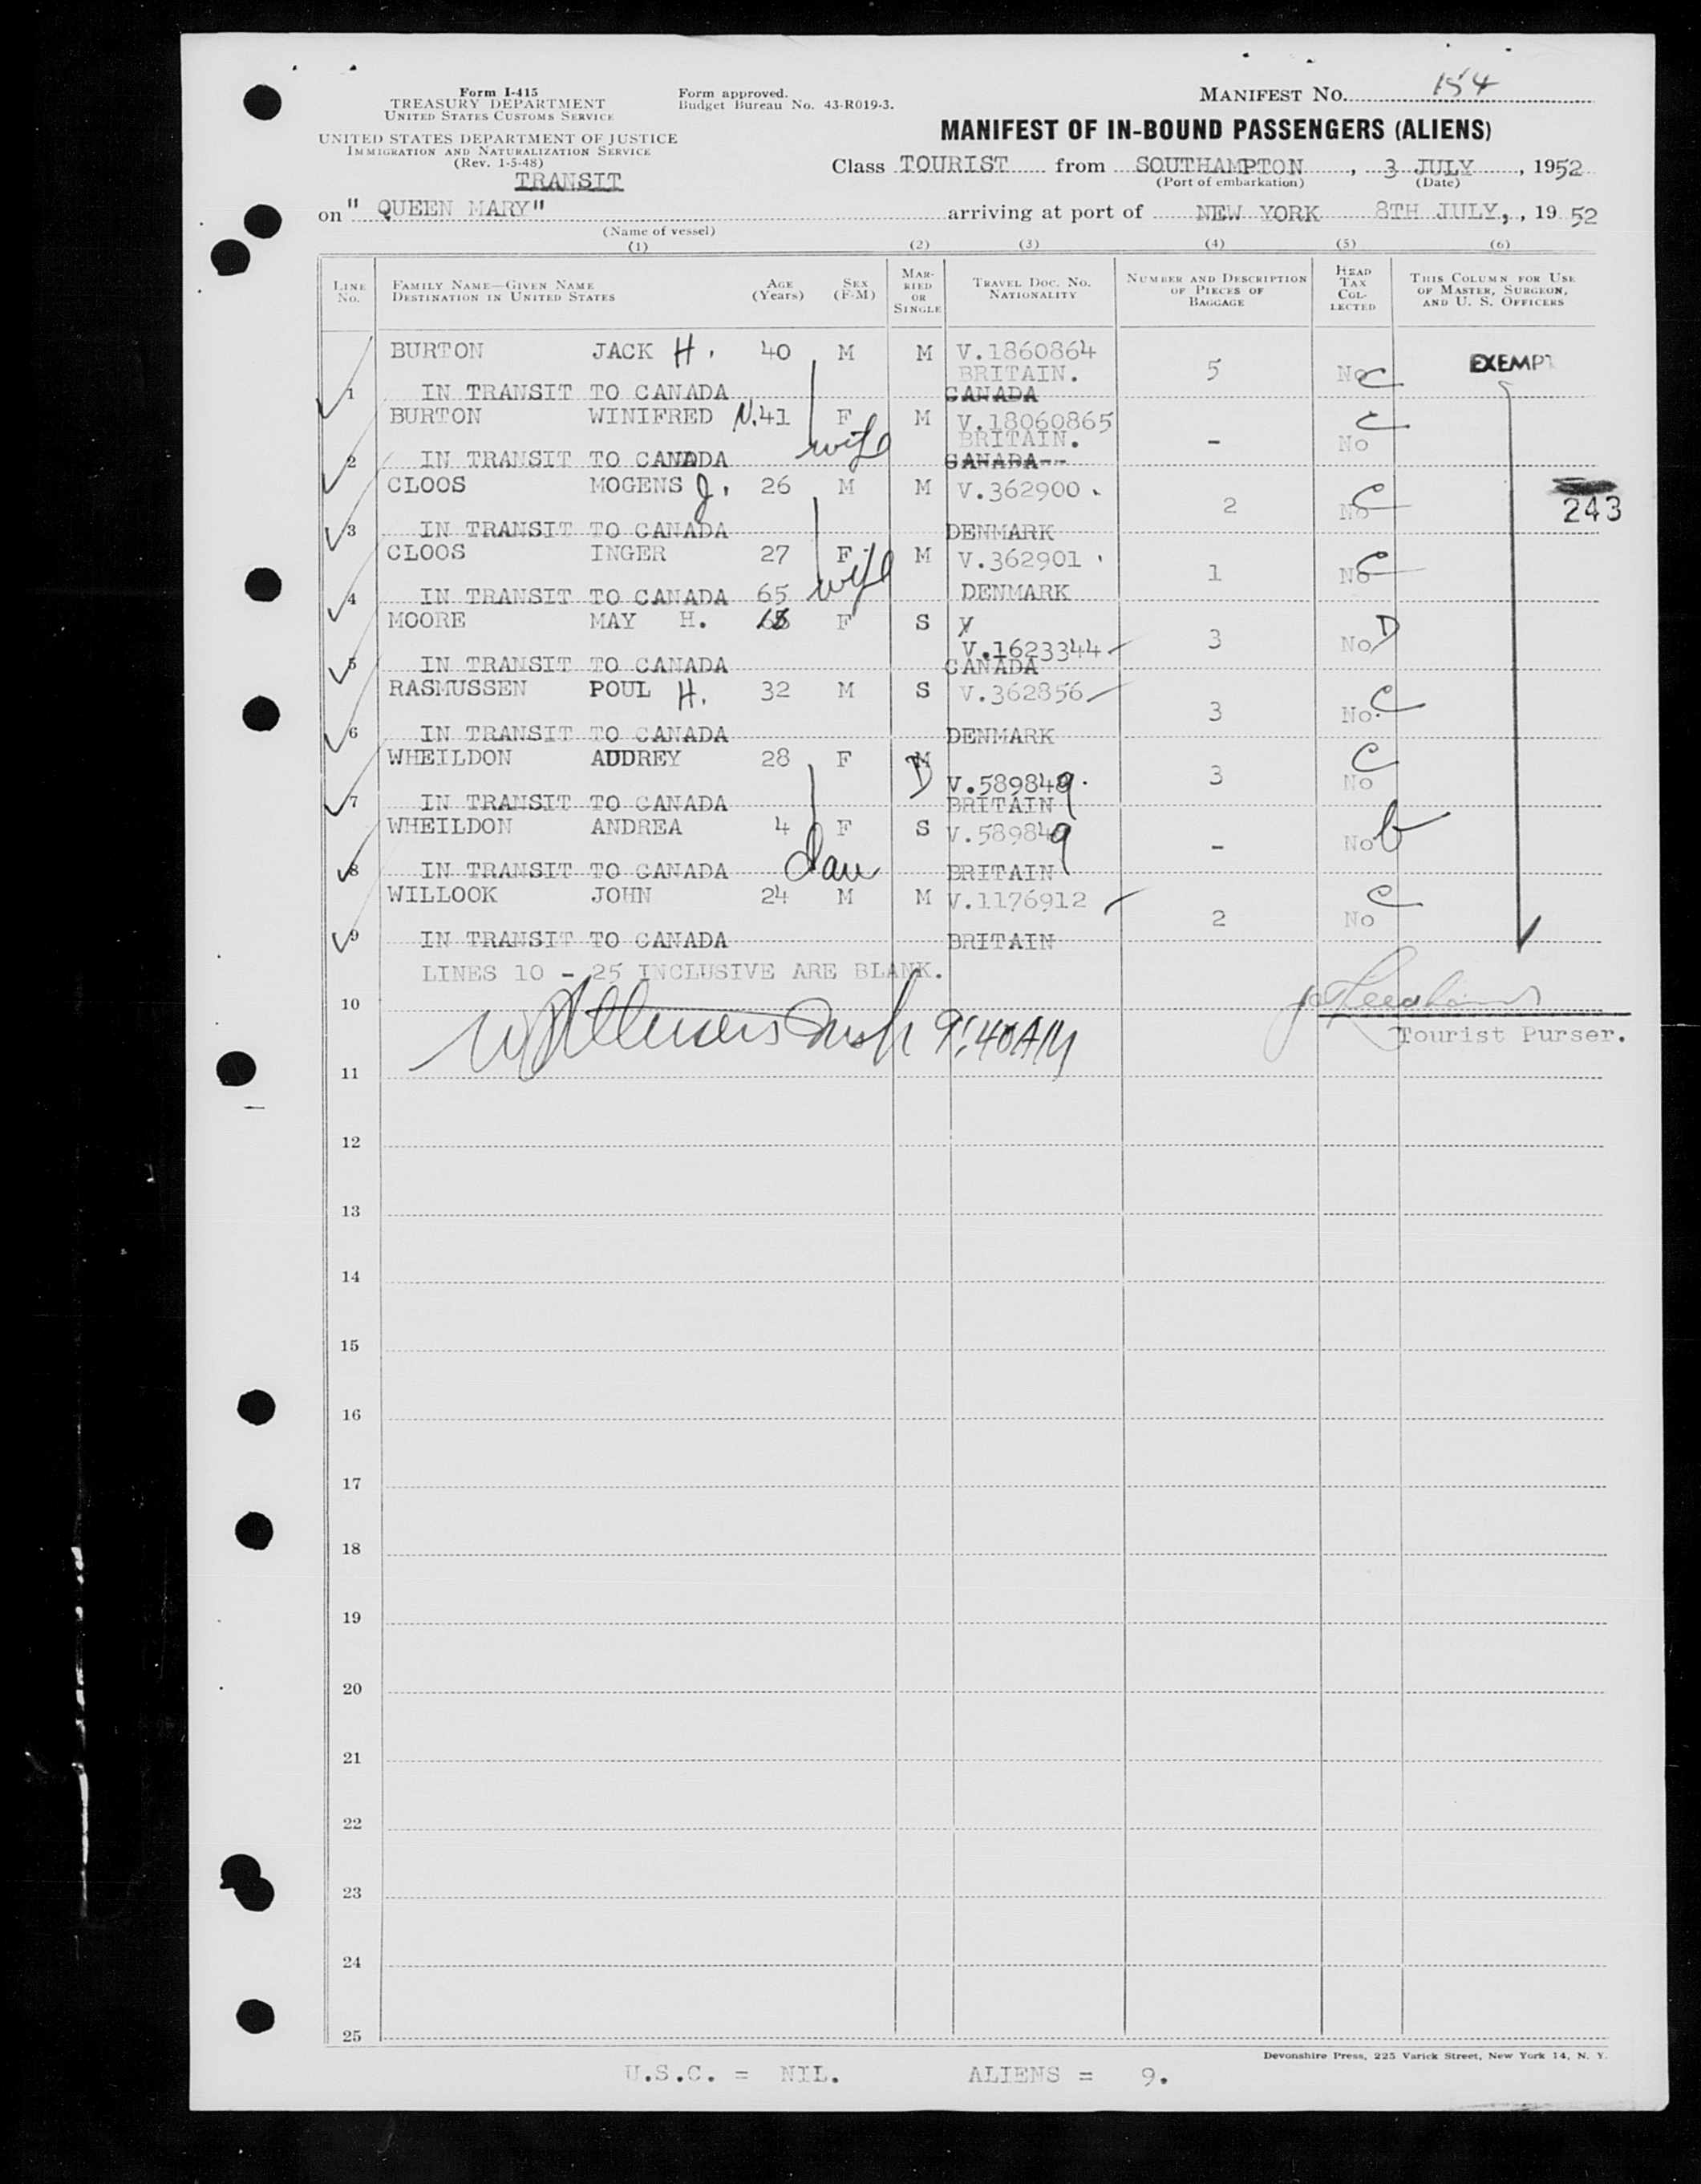 Form I-415
TREASURY DEPARTMENT
UNITED STATES CUSTOMS SERVICE
UNITED STATES DEPARTMENT OF JUSTICE
IMMIGRATION AND NATURALIZATION SERVICE
(Rev. 1-5-48)
TRANSIT
Form approved.
Budget Bureau No. 43-R019-3.
MANIFEST NO. 154
MANIFEST OF IN-BOUND PASSENGERS (ALIENS)
Class TOURIST from SOUTHAMPTON, 3 JULY, 1952
(Port of embarkation) (Date)
on "QUEEN MARY" arriving at port of NEW YORK 8TH JULY,, 1952
(Name of vessel)
(1) (2) (3) (4) (5) (6)
LINE NO. FAMILY NAME—GIVEN NAME DESTINATION IN UNITED STATES AGE (Years) SEX (F-M) MARRIED OR SINGLE TRAVEL DOC. NO. NATIONALITY NUMBER AND DESCRIPTION OF PIECES OF BAGGAGE HEAD TAX COLLECTED THIS COLUMN FOR USE OF MASTER, SURGEON, AND U. S. OFFICERS
BURTON JACK H. 40 M M V.1860864 5 No C EXEMPT
BRITAIN.
1 IN TRANSIT TO CANADA CANADA
BURTON WINIFRED N. 41 F M V.18060865 - No C
wife BRITAIN.
2 IN TRANSIT TO CANADA CANADA--
CLOOS MOGENS J. 26 M M V.362900 2 No C 243
3 IN TRANSIT TO CANADA DENMARK
CLOOS INGER 27 F M V.362901 1 No C
wife
4 IN TRANSIT TO CANADA 65 DENMARK
MOORE MAY H. 65 F S V 3 No D
V.1623344
5 IN TRANSIT TO CANADA CANADA
RASMUSSEN POUL H. 32 M S V.362856 3 No. C
6 IN TRANSIT TO CANADA DENMARK
WHEILDON AUDREY 28 F M D V.589849. 3 No C
7 IN TRANSIT TO CANADA BRITAIN
WHEILDON ANDREA 4 F S V.589849 - No b
8 IN TRANSIT TO CANADA dau BRITAIN
WILLOOK JOHN 24 M M V.1176912 2 No C
9 IN TRANSIT TO CANADA BRITAIN
LINES 10 - 25 INCLUSIVE ARE BLANK.
10
9:40AM
Tourist Purser.
11
12
13
14
15
16
17
18
19
20
21
22
23
24
25
Devonshire Press, 225 Varick Street, New York 14, N. Y.
U.S.C. = NIL. ALIENS = 9.